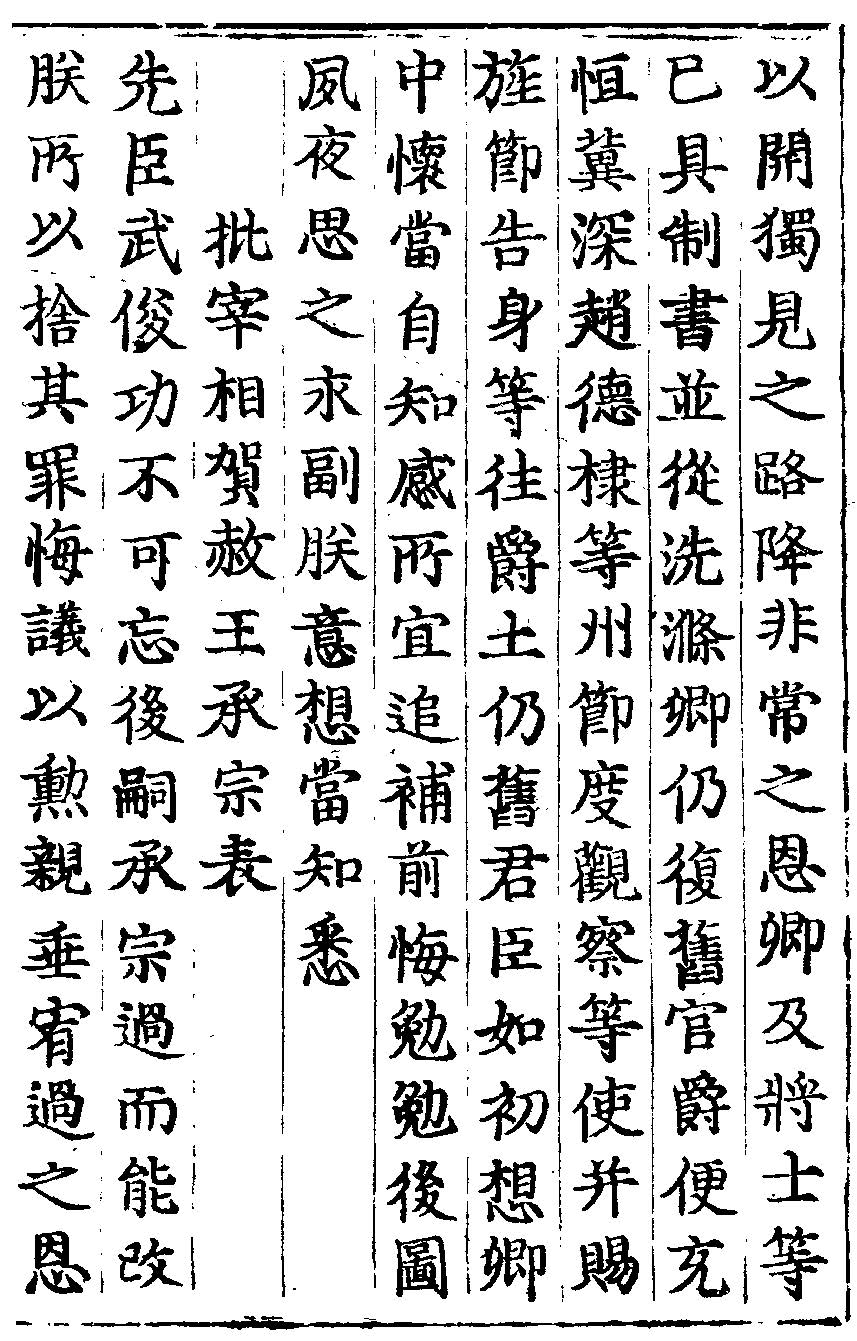 以開獨見之路降非常之恩卿及將士等
已具制書並從洗滌卿仍復舊官爵便充
恒冀深趙德棣等州節度觀察等使并賜
旌節告身等往爵土仍舊君臣如初想卿
中懷當自知感所宜追補前悔勉勉後圖
夙夜思之永副朕意想當知悉
批宰相賀赦王承宗表
先臣武俊功不可忘後嗣承宗過而能改
朕所以捨其罪悔議以勲親垂宥過之恩